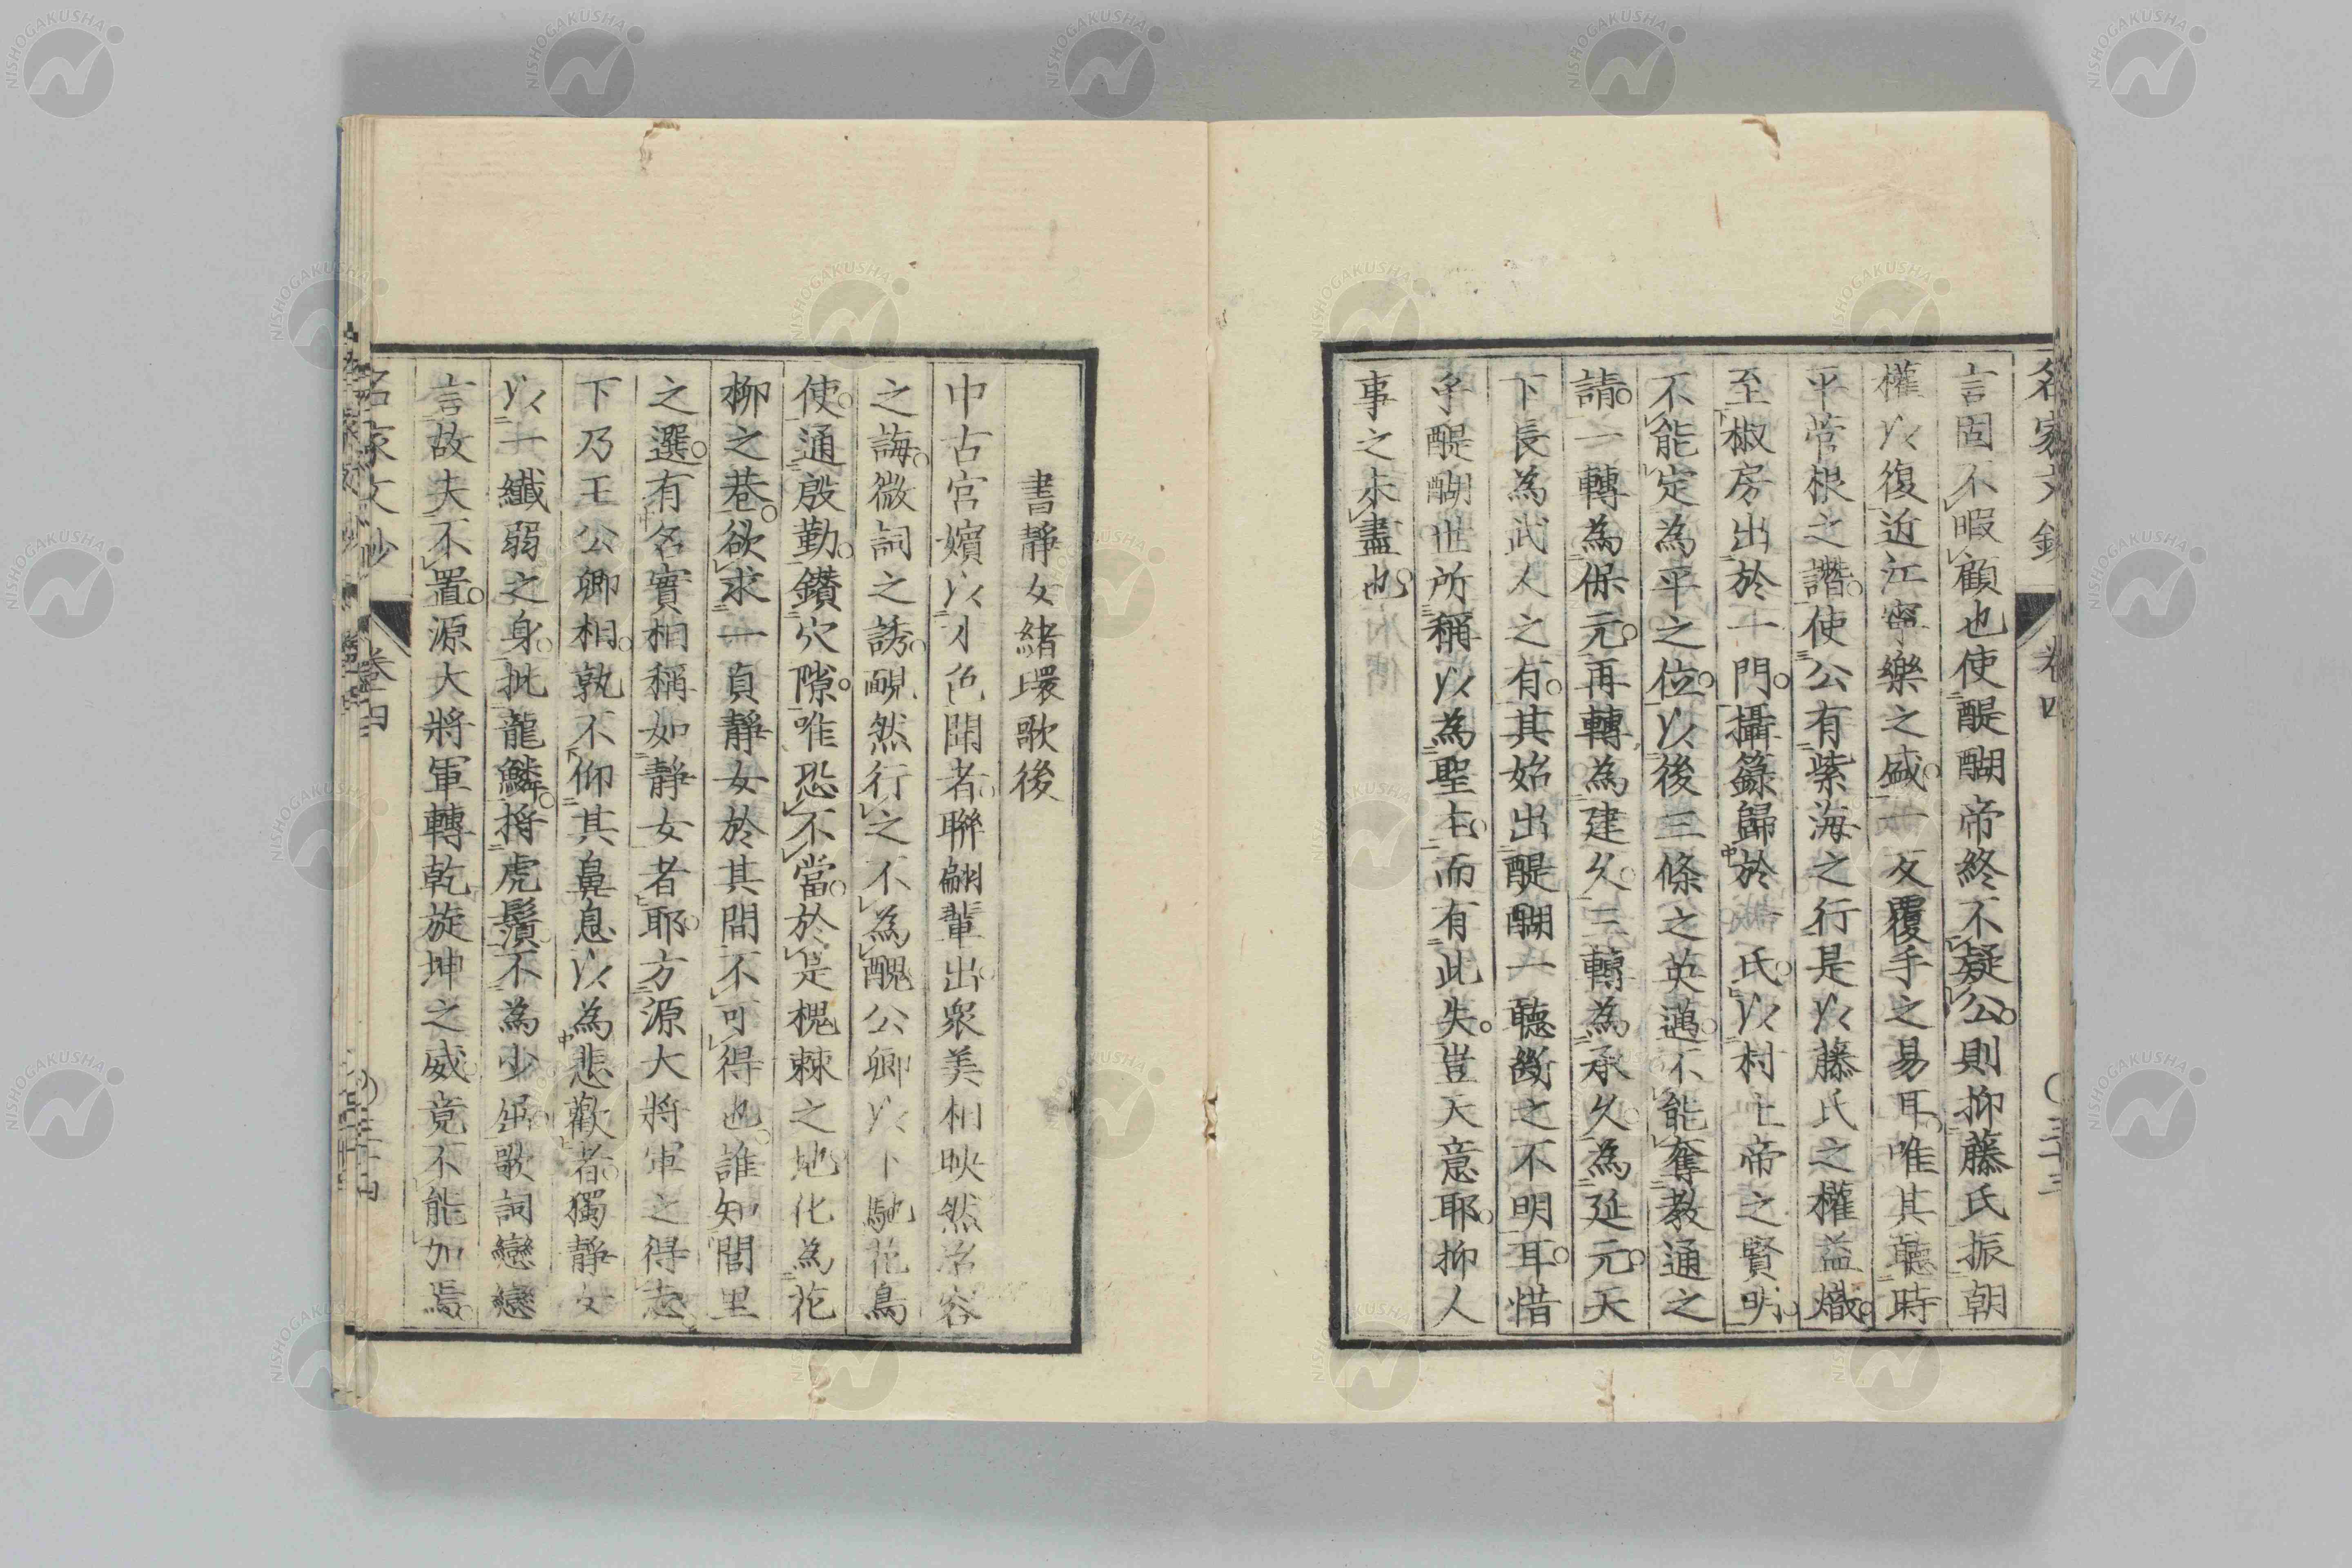 名家文鈔 卷四 三十三
言固不暇顧也使醍醐帝終不疑公則抑藤氏振朝
權以復近江寧樂之盛一反覆手之易耳唯其聽時
平菅根之譖使公有紫海之行是以藤氏之權益熾
至椒房出於一門攝籙歸於一氏以村上帝之賢明
不能定為平之位以後三條之英邁不能奪教通之
請一轉為保元再轉為建久三轉為承久為延元天
下長為武人之有其始出醍醐一聽斷之不明耳惜
乎醍醐世所稱以為聖主而有此失豈天意耶抑人
事之未盡也
書靜女緒環歌後
中古宮嬪以才色聞者聯翩輩出眾美相映然冶容
之誨微詞之誘靦然行之不為醜公卿以下馳花鳥
使通殷勤鑽穴隙唯恐不當於是槐棘之地化為花
柳之巷欲求一貞靜女於其間不可得也誰知閭里
之選有名實相稱如靜女者耶方源大將軍之得志
下乃王公卿相孰不仰其鼻息以為悲歡者獨靜女
以一纖弱之身批龍鱗捋虎鬚不為少屈歌詞戀戀
言故夫不置源大將軍轉乾旋坤之威竟不能加焉
名家文鈔 卷四